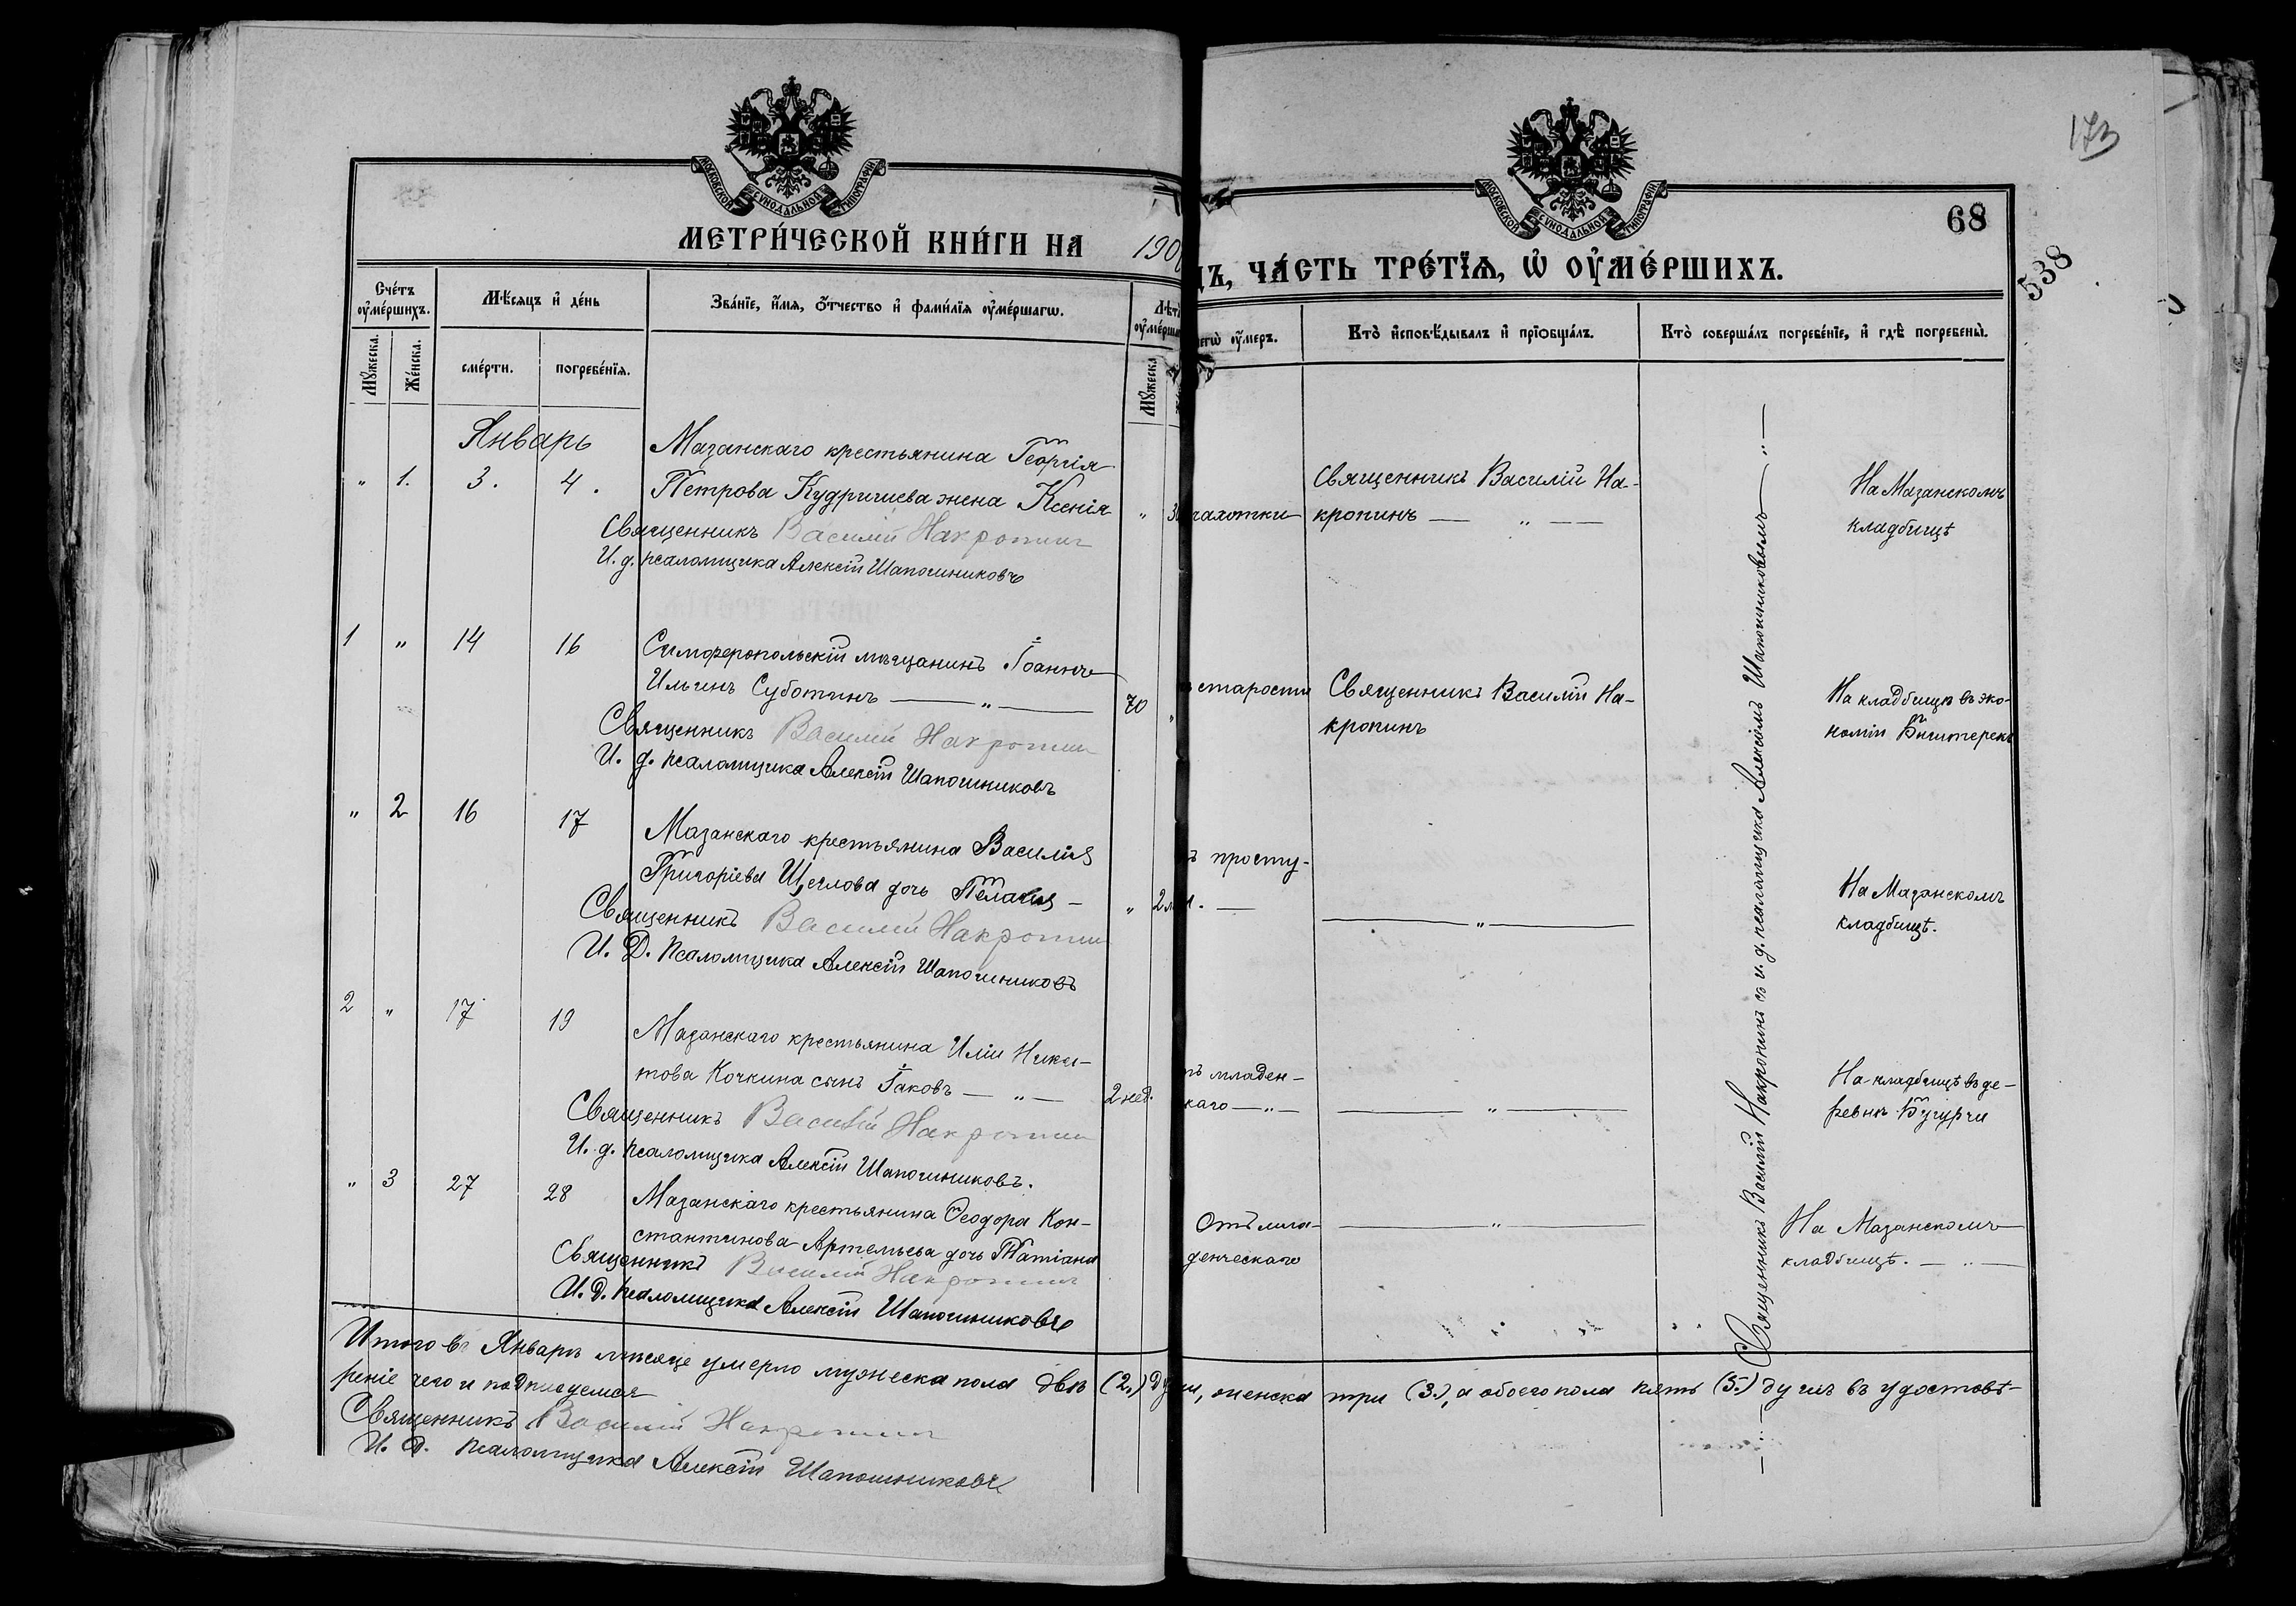 173
МОСКОВСКОЙ СѴНОДАЛЬНОЙ ТИПОГРАФІИ
МОСКОВСКОЙ СѴНОДАЛЬНОЙ ТИПОГРАФІИ
68
538
МЕТРИ́ЧЕСКОЙ КНИ́ГИ НА 190
ЧА́СТЬ ТРЕ́ТІѦ, Ѡ҆ ОУ҆МЕ́РШИХЪ.
Сче́тъ оу҆ме́ршихъ.
Мꙋ́жеска.
Же́нска.
Мѣ́сяцъ и҆ де́нь
сме́рти.
погребе́нїѧ.
Зва́нїе, и҆́мѧ, ѻ҆́тчество и҆ фами́лїѧ оу҆ме́ршагѡ.
Мꙋ́жеска
оу҆́меръ.
Кто̀ и҆сповѣ́дывалъ и҆ прїѡбща́лъ.
Кто̀ соверша́лъ погребе́нїе, и҆ гдѣ̀ погребены̀.
Январь
" 1. 3. 4. Мазанскаго крестьянина Георгія
Петрова Кудришева жена Ксенія " чахотки
Священникъ Василій Накропинъ
И. д. псаломщика Алексій Шапошниковъ
Священникъ Василій На-
кропинъ — " —
На Мазанскомъ
кладбищѣ
1 " 14 16 Симферопольскій мѣщанинъ Іоаннъ
Ильинъ Суботинъ — " — 70 " старости
Священникъ Василій Накропинъ
И. д. псаломщика Алексій Шапошниковъ
Священникъ Василій На-
кропинъ
На кладбищѣ въ эко-
номіи
" 2 16 17 Мазанскаго крестьянина Василія
Григоріева Щеглова дочь Пелагія — " 2
Священникъ Василій Накропинъ
И. Д. Псаломщика Алексій Шапошниковъ
просту-
— " —
На Мазанскомъ
кладбищѣ.
2 " 17 19 Мазанскаго крестьянина Иліи Ники-
това Кочкина сынъ Іаковъ — " — 2 нед.
Священникъ Василій Накропинъ
И. д. псаломщика Алексій Шапошниковъ.
младен-
каго — " —
— " —
На кладбищѣ въ де-
ревнѣ Бугурчи
" 3 27 28 Мазанскаго крестьянина Ѳеодора Кон-
стантинова Артемьева дочь Татіана
Священникъ Василій Накропинъ
И. Д. псаломщика Алексій Шапошниковъ
Отъ мла-
денческаго
— " —
На Мазанскомъ
кладбищѣ. — " —
Священникъ Василій Накропинъ съ и. д. псаломщика Алексіемъ Шапошниковымъ
Итого въ Январѣ мѣсяцѣ умерло мужеска пола двѣ (2.) ду , женска три (3.), а обоего пола пять (5.) душъ въ удостовѣ-
реніе чего и подписуемся
Священникъ Василій Накропинъ
И. Д. псаломщика Алексій Шапошниковъ